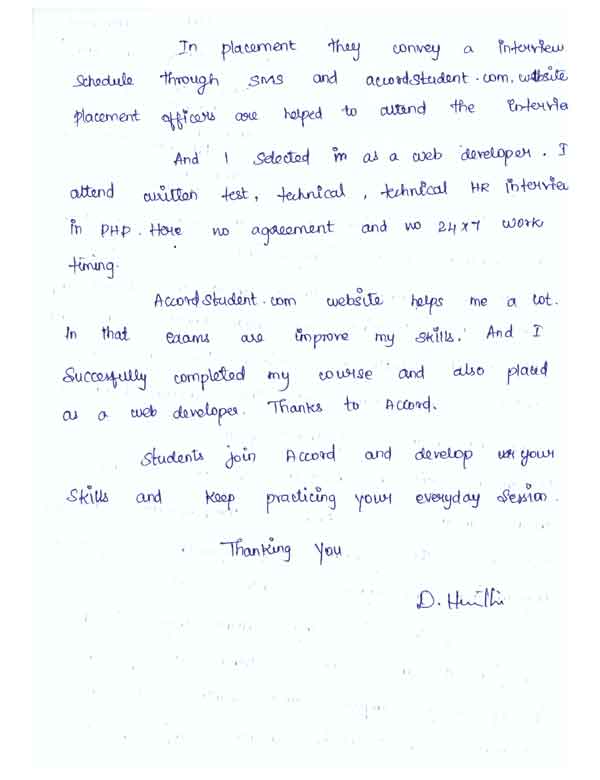 In placement they convey a interview
schedule through SMS and accordstudent.com. website
placement officers are helped to attend the intervie
And I selected in as a web developer. I
attend written test, technical, technical HR intervie
in PHP. Here no agreement and no 24x7 work
timing.
Accordstudent.com website helps me a lot.
In that exams are improve my skills. And I
Succesfully completed my course and also placed
as a web developer. Thanks to Accord.
Students join Accord and develop your
skills and keep practicing your everyday session.
Thanking You
D.